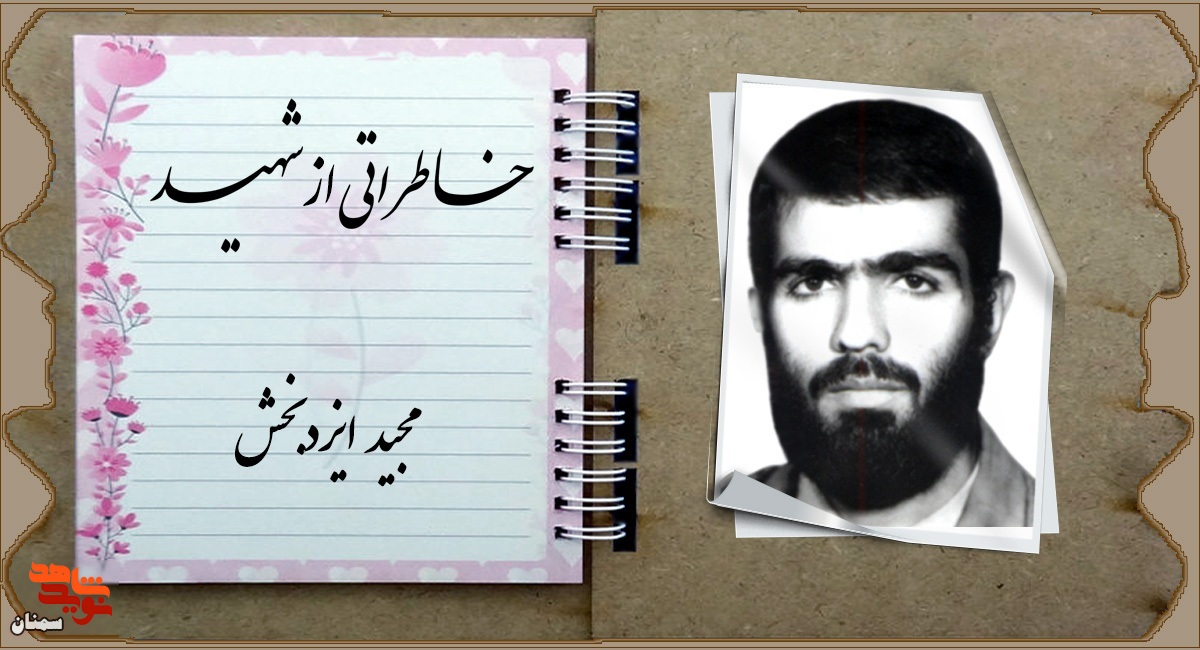 خاطراتی از شهید
مجید ایزدبخش
نوید شاهد
سمنان